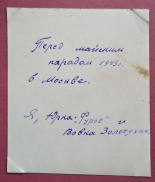 Перед майским
парадом 1945г.
в Москве.
Я, Юрка "Фурсе" и
Вовка Золотухин.